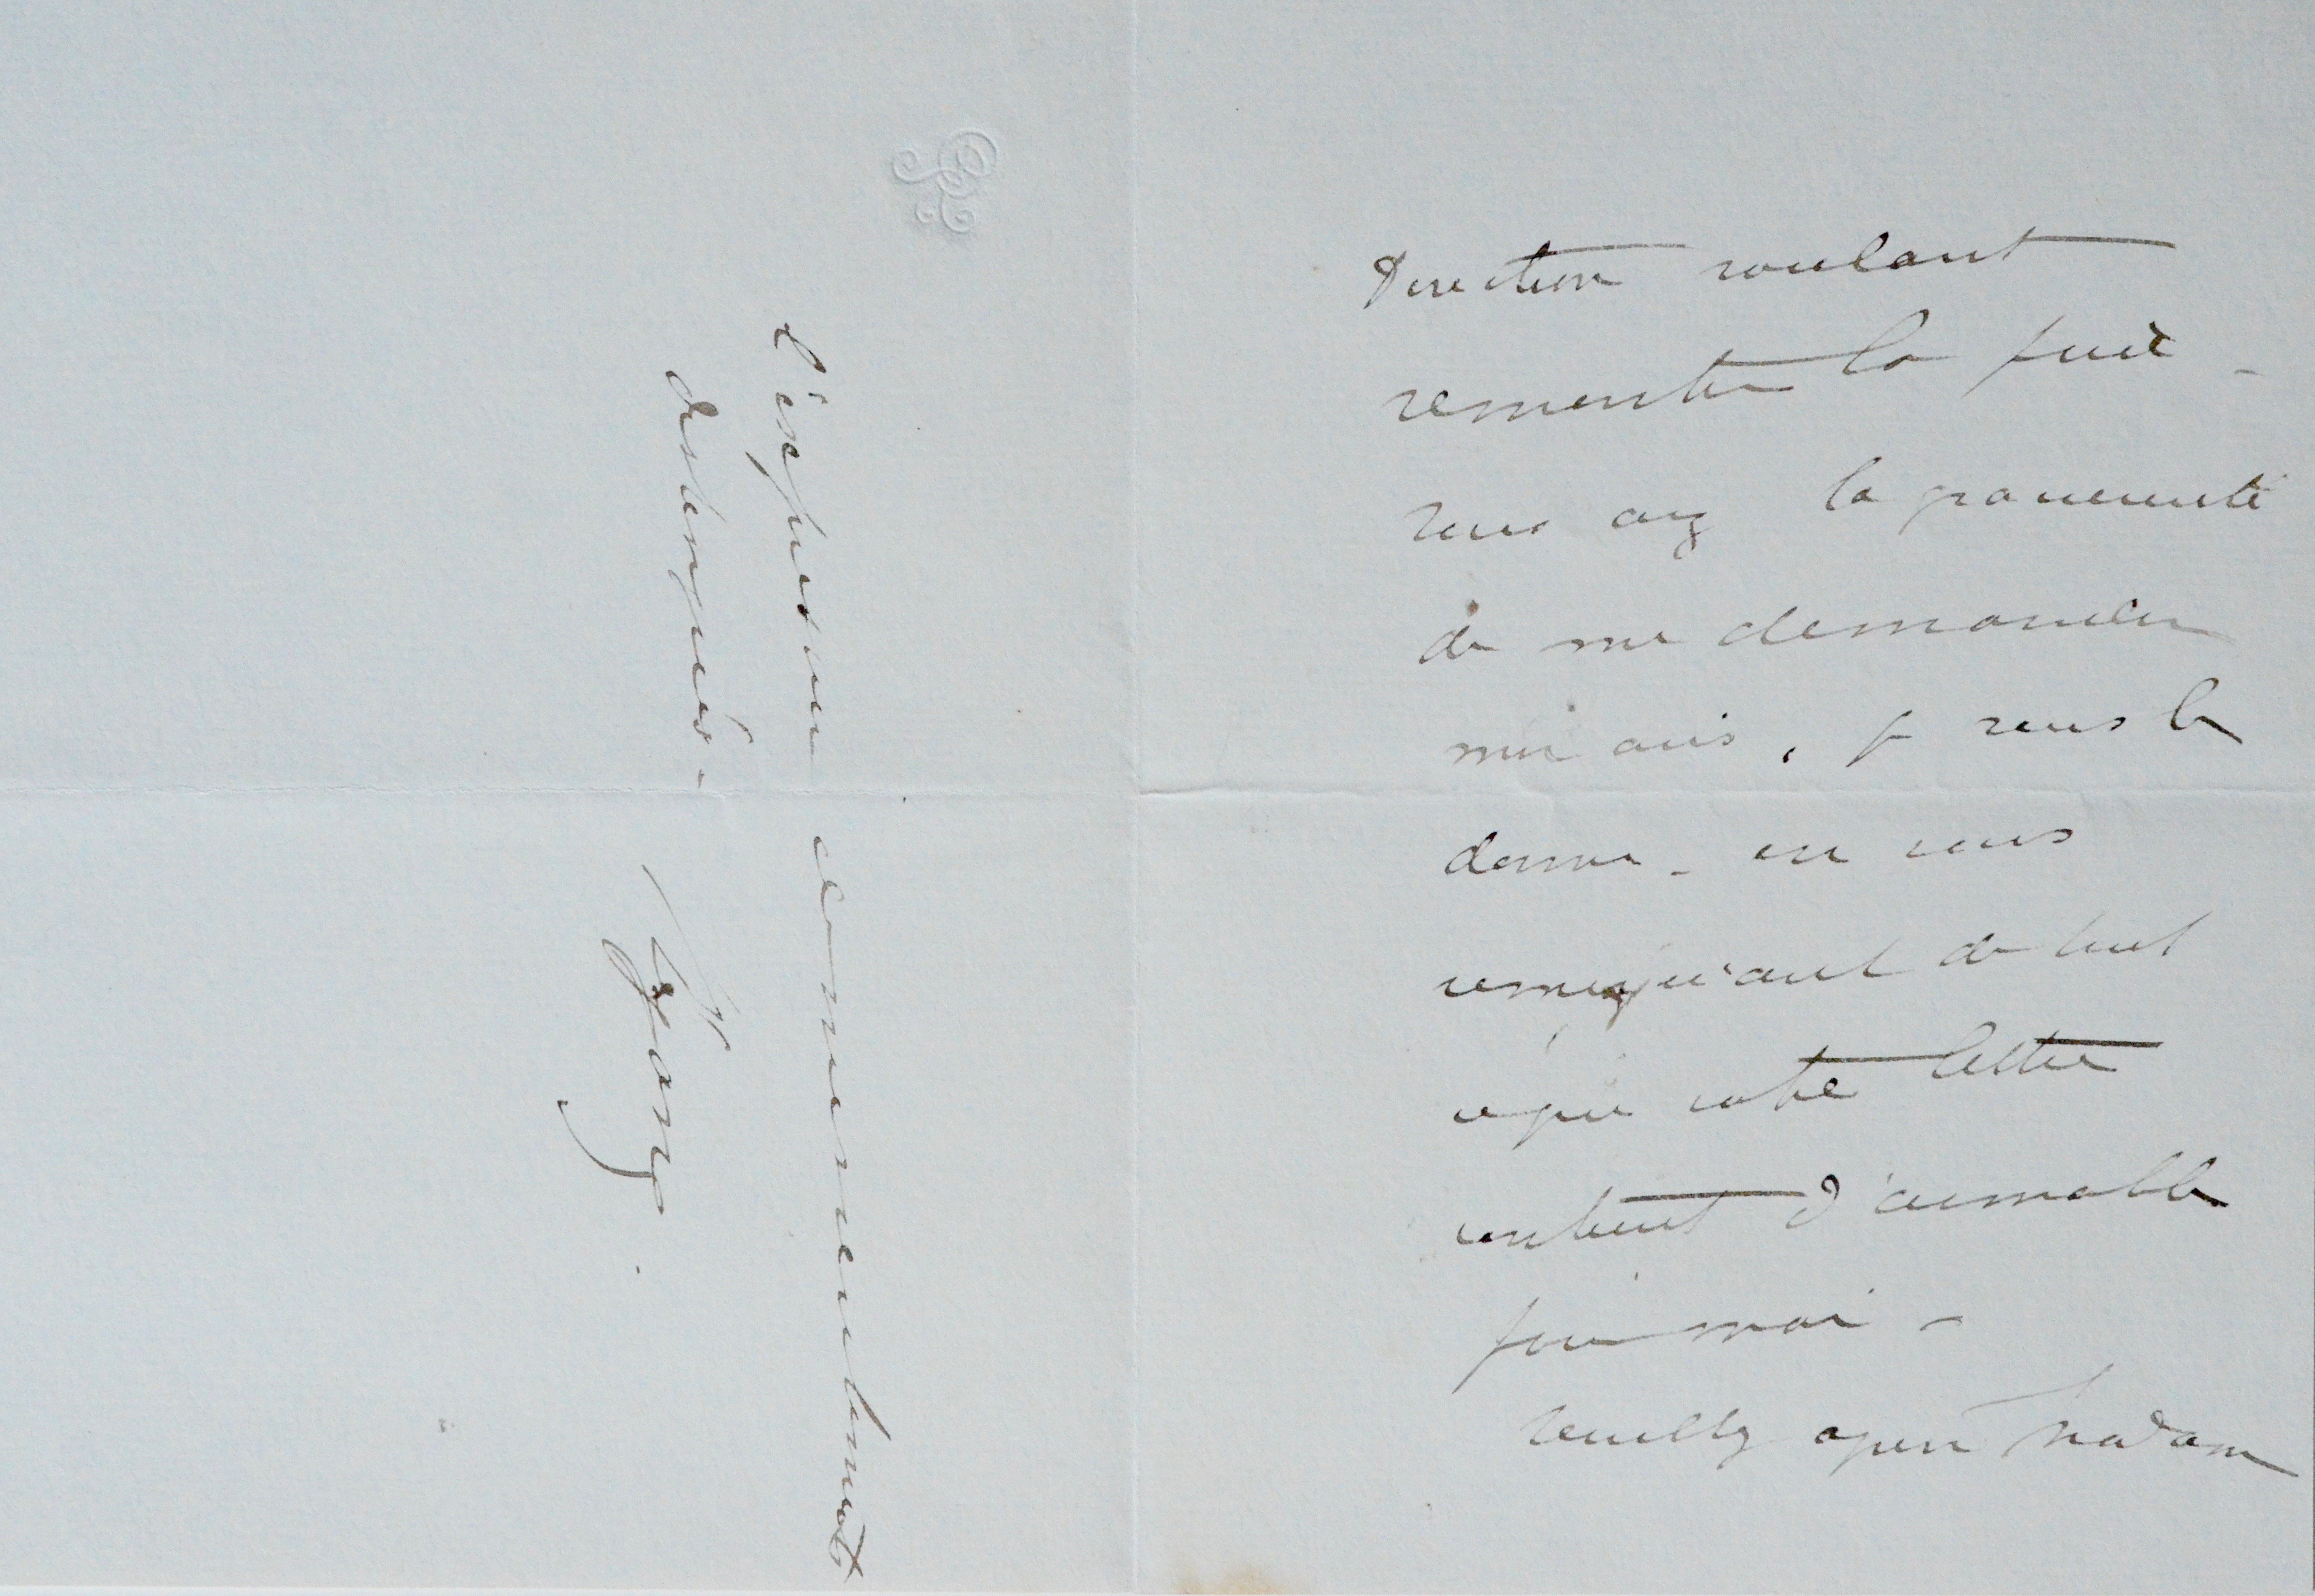 Direction voulant
remonter la pièce -
vous avez la
de me demander
mon avis, je vous le
donne - en vous
remerciant de tout
ce que votre lettre
contient d'aimable
pour moi -
veuillez agréer Madame
l'expression de mes sentiments
distingués -